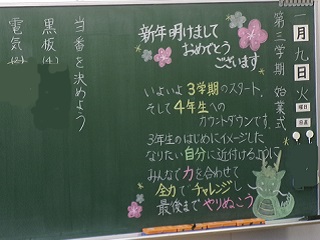 一月九日火
曜日
日直
第三学期 始業式
新年明けまして
おめでとう
ございます
いよいよ3学期のスタート、
そして4年生への
カウントダウンです。
3年生のはじめにイメージした
なりたい自分に近付けるように
みんなで力を合わせて
全力でチャレンジし
最後までやりぬこう
当番を決めよう
黒板(4)
電気(2)